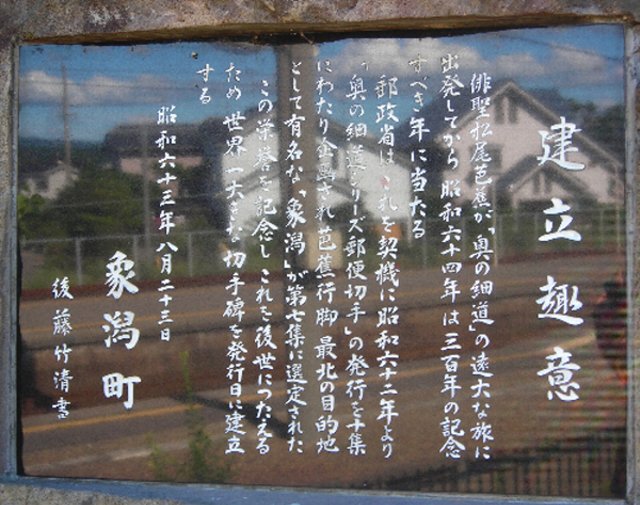 建立趣意
俳聖松尾芭蕉が「奥の細道」の遠大な旅に
出発してから昭和六十四年は三百年の記念
すべき年に当たる
郵政省は、これを契機に昭和六十二年より
「奥の細道シリーズ郵便切手」の発行を十集
にわたり企画され芭蕉行脚最北の目的地
として有名な「象潟」が第七集に選定された
この栄誉を記念しこれを後世につたえる
ため世界一大きな切手碑を発行日に建立
する
昭和六十三年八月二十三日
象潟町
後藤竹清書